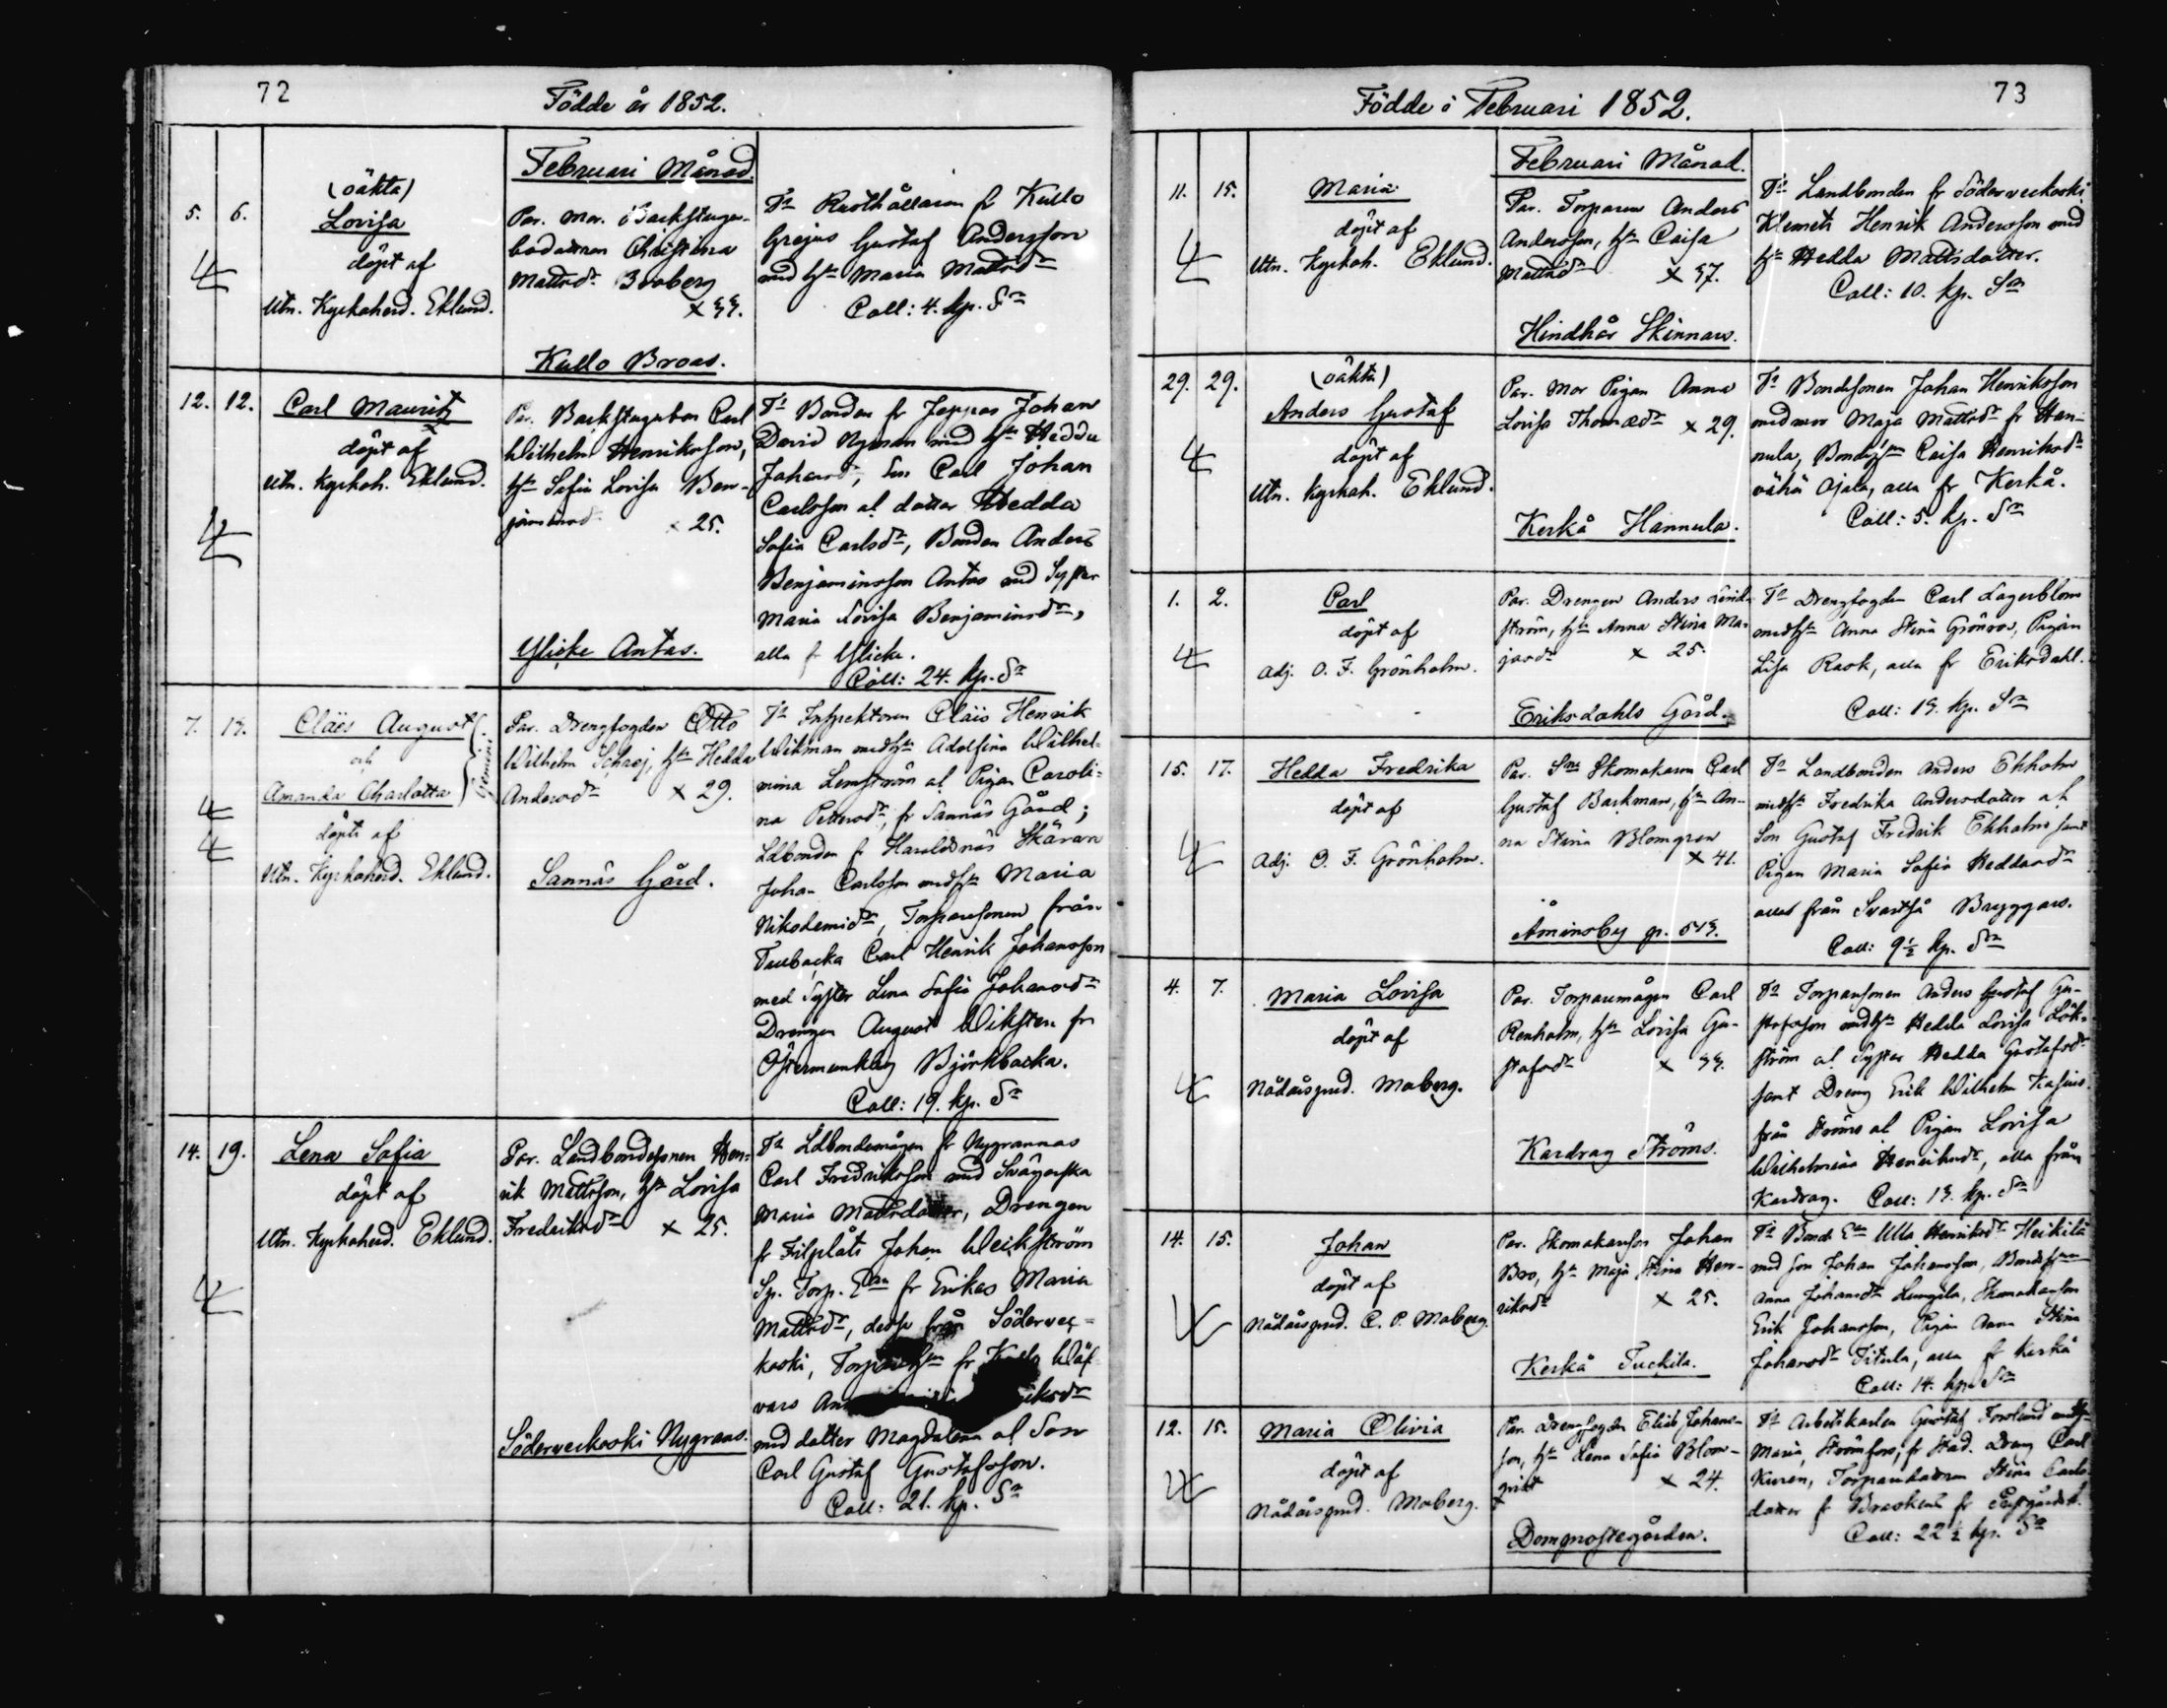 72
Födde år 1852.
Februari Månad.
5. 6.
(oäkta)
Lovisa
döpt af
Utn. Kyrkoherd. Eklund.
Par. Mor. Backstugu-
Christina
Mattsdr. Broberg
Kullo Broas.
Tr Rusthållaren fr Kullo
Grejus Gustaf Andersson
med hu Maria Mattsdr
Coll: 4. kp. Sr
12. 12.
Carl Mauritz
döpt af
Utn. Kyrkoh. Eklund.
Par. Backstugubon Carl
Wilhelm Henriksson,
hu Sofia Lovisa Ben-
jaminsd × 25.
Ylicke Antas.
Tr Bonden fr Jeppas Johan
David Nyman med hu Hedda
Johansdr, Carl Johan
Carlsson a dotter Hedda
Sofia Carlsdr, Bonden Anders
Benjaminsson Antas med Syster
Maria Lovisa Benjaminsdr,
alla fr Ylicke.
Coll: 24. kp. Sr
7. 13.
Claës August
och
Amanda Charlotta
Gemini
döpte af
Utn. Kyrkoherd. Eklund.
Par. Drengfogden Otto
Wilhelm hu Hedda
Andersdr × 29.
Sannäs Gård.
Tr Inspektoren Claës Henrik
Wikman med hu Adolfina Wilhel-
mina Lemström a Pigan Caroli-
na Pettersdr, fr Sannäs Gård;
Ldbonden fr Haraldsnäs Skåran
Johan Carlsson med hu Maria
Nikodemidr, Torparsonen från
Tallbacka Carl Henrik Johansson
med Syster Lena Sofia Johansdr
Drengen August Wiksten fr
Östermunkby Björkbacka.
Coll: 19. kp. Sr
14. 19.
Lena Sofia
döpt af
Utn. Kyrkoherd. Eklund.
Par. Landbondesonen Hen-
rik Mattsson, hu Lovisa
Fredriksdr × 25.
Söderveckoski Nygranas.
Tr Ldbondemågen fr Nygrannas
Carl Fredriksson med Svägerska
Maria Mattsdotter, Drengen
fr Filplåts Johan Weikström
Sp. Torp. Ean fr Erikas Maria
Mattsdr, desse från Södervec-
koski, fr Kullo Wäf-
vars
med dotter Magdalena a Son
Carl Gustaf Gustafsson.
Coll: 21. kp. Sr
73
Födde i Februari 1852.
Februari Månad.
11. 15.
Maria
döpt af
Utn. Kyrkoh. Eklund.
Par. Torparen Anders
Andersson, hu Caisa
Mattsdr × 37.
Hindhår Skinnars.
Tr Landbonden fr Söderveckoski
Klemets Henrik Andersson med
hu Hedda Mattsdotter.
Coll: 10. kp. Sr
29. 29.
(oäkta)
Anders Gustaf
döpt af
Utn. Kyrkoh. Eklund.
Par. Mor Pigan Anna
Lovisa Thomædr × 29.
Kerkå Hannula.
Tr Bondesonen Johan Henriksson
med mor Maja Mattsdr fr Han-
nula, Caisa Henriksdr
vähä Ojala, alla fr Kerkå.
Coll: 5. kp. Sr
1. 2.
Carl
döpt af
Adj. O. F. Grönholm.
Par. Drengen Anders Lind-
ström, hu Anna Stina Ma-
jasdr × 25.
Eriksdahls Gård.
Tr Drengfogden Carl Lagerblom
med hu Anna Stina Grönros, Pigan
Lisa Rask, alla fr Eriksdahl.
Coll: 13. kp. Sr
15. 17.
Hedda Fredrika
döpt af
Adj. O. F. Grönholm.
Par. Skomakaren Carl
Gustaf Backman, hu An-
na Stina Blomgren
× 41.
Åminsby p. 513.
Tr Landbonden Anders Ekholm
med hu Fredrika Andersdotter a
Son Gustaf Fredrik Ekholm samt
Pigan Maria Sofia Heddasdr
alla från Svartså Bryggars.
Coll: 9½ kp. Sr
4. 7.
Maria Lovisa
döpt af
Nådårspred. Moberg.
Par. Torparemågen Carl
Renholm, hu Lovisa Gu-
stafsdr × 33.
Kardrag Ströms.
Tr Torparsonen Anders Gustaf Gu-
stafsson med hu Hedda Lovisa Lök-
ström a Syster Hedda Gustafsdr
samt Dreng Erik Wilhelm
från Ströms a Pigan Lovisa
Wilhelmina Henriksdr, alla från
Kardrag. Coll: 13. kp. Sr
14. 15.
Johan
döpt af
Nådårspred. C. P. Moberg.
Par. Skomakarson Johan
Bro, hu Maja Stina Hen-
riksdr × 25.
Kerkå Tuckila.
Tr Bond. Ean Ulla Henriksdr Heikilä
med son Johan Johansson,
Anna Johansdr Skomakarson
Erik Johansson, Pigan Anna Stina
Johansdr Titula, alla fr Kerkå
Coll: 14. kp. Sr
12. 15.
Maria Olivia
döpt af
Nådårspred. Moberg.
Par. Drengfogden Elias Johans-
son, hu Lena Sofia Blom-
qvist × 24.
Domprostegården.
Tr Arbetskarlen Gustaf Forslund med hu
Maria Strömfors, fr Stad. Dreng Carl
Kuren, Stina Carls-
dotter fr
Coll: 22½ kp. Sr